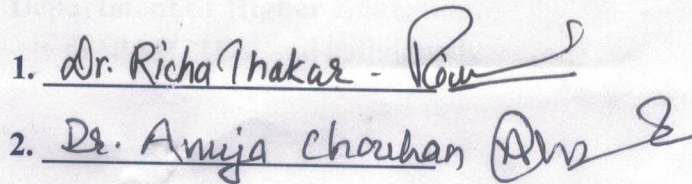 1. Dr. Richa Thakar -
2. Dr. Anuja Chouhan